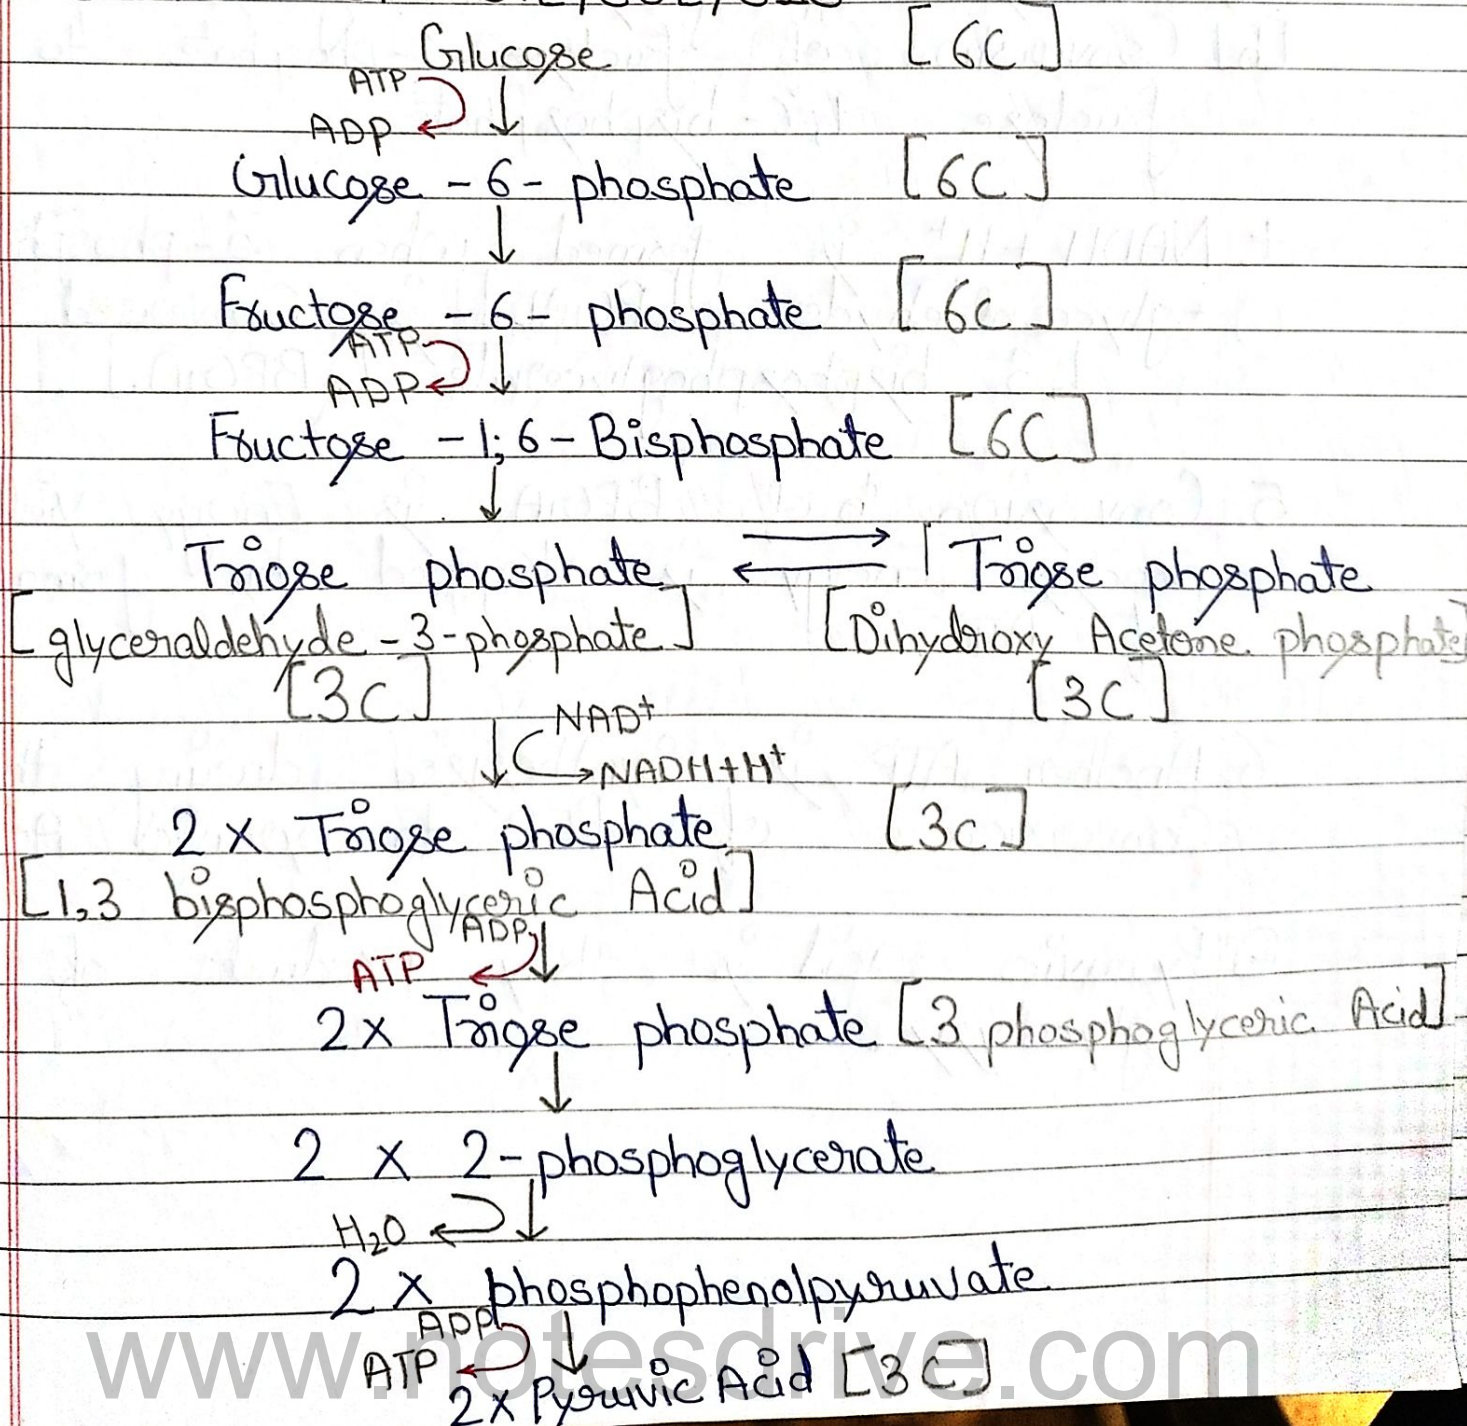 Glucose [6C]
ATP
ADP
Glucose - 6 - phosphate [6C]
Fructose - 6 - phosphate [6C]
ATP
ADP
Fructose - 1,6 - Bisphosphate [6C]
Triose phosphate ⇌ Triose phosphate
[glyceraldehyde - 3 - phosphate] [Dihydroxy Acetone phosphate]
[3C] [3C]
NAD+
NADH+H+
2 x Triose phosphate [3C]
[1,3 bisphosphoglyceric Acid]
ADP
ATP
2x Triose phosphate [3 phosphoglyceric Acid]
2 x 2-phosphoglycerate
H2O
2 x phosphophenolpyruvate
ADP
ATP
2 x Pyruvic Acid [3C]
www.notesdrive.com